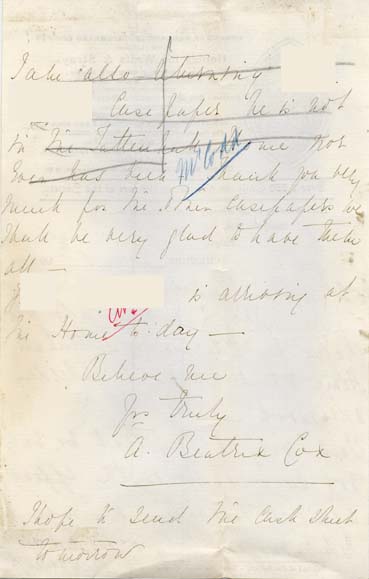 I am also returning
Case paper he is not
in the Tottenham Home nor
Ever has been Thank you very
Mr Codd
much for the other Casepapers we
shall be very glad to have them
all –
is arriving at
the Home to-day –
Believe me
Yrs truly
A. Beatrix Cox
I hope to send the Cash Sheet
tomorrow